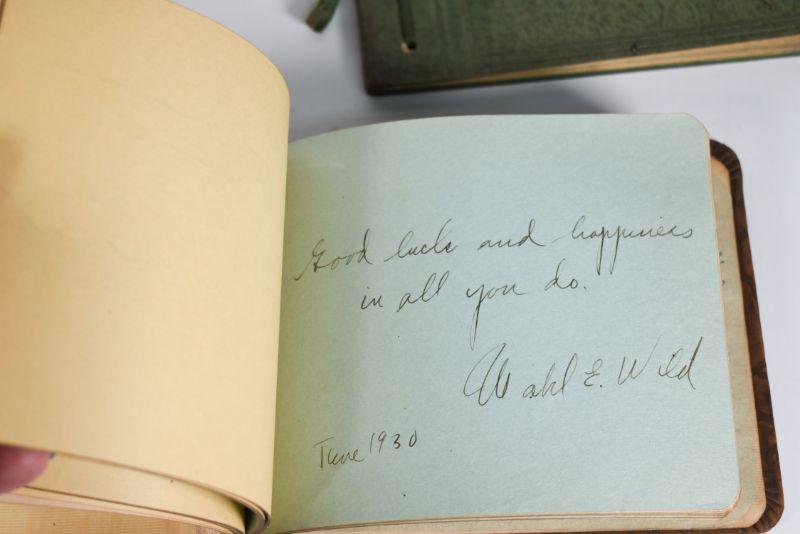 Good luck and happiness
in all you do.
Wahl E. Wild
June 1930